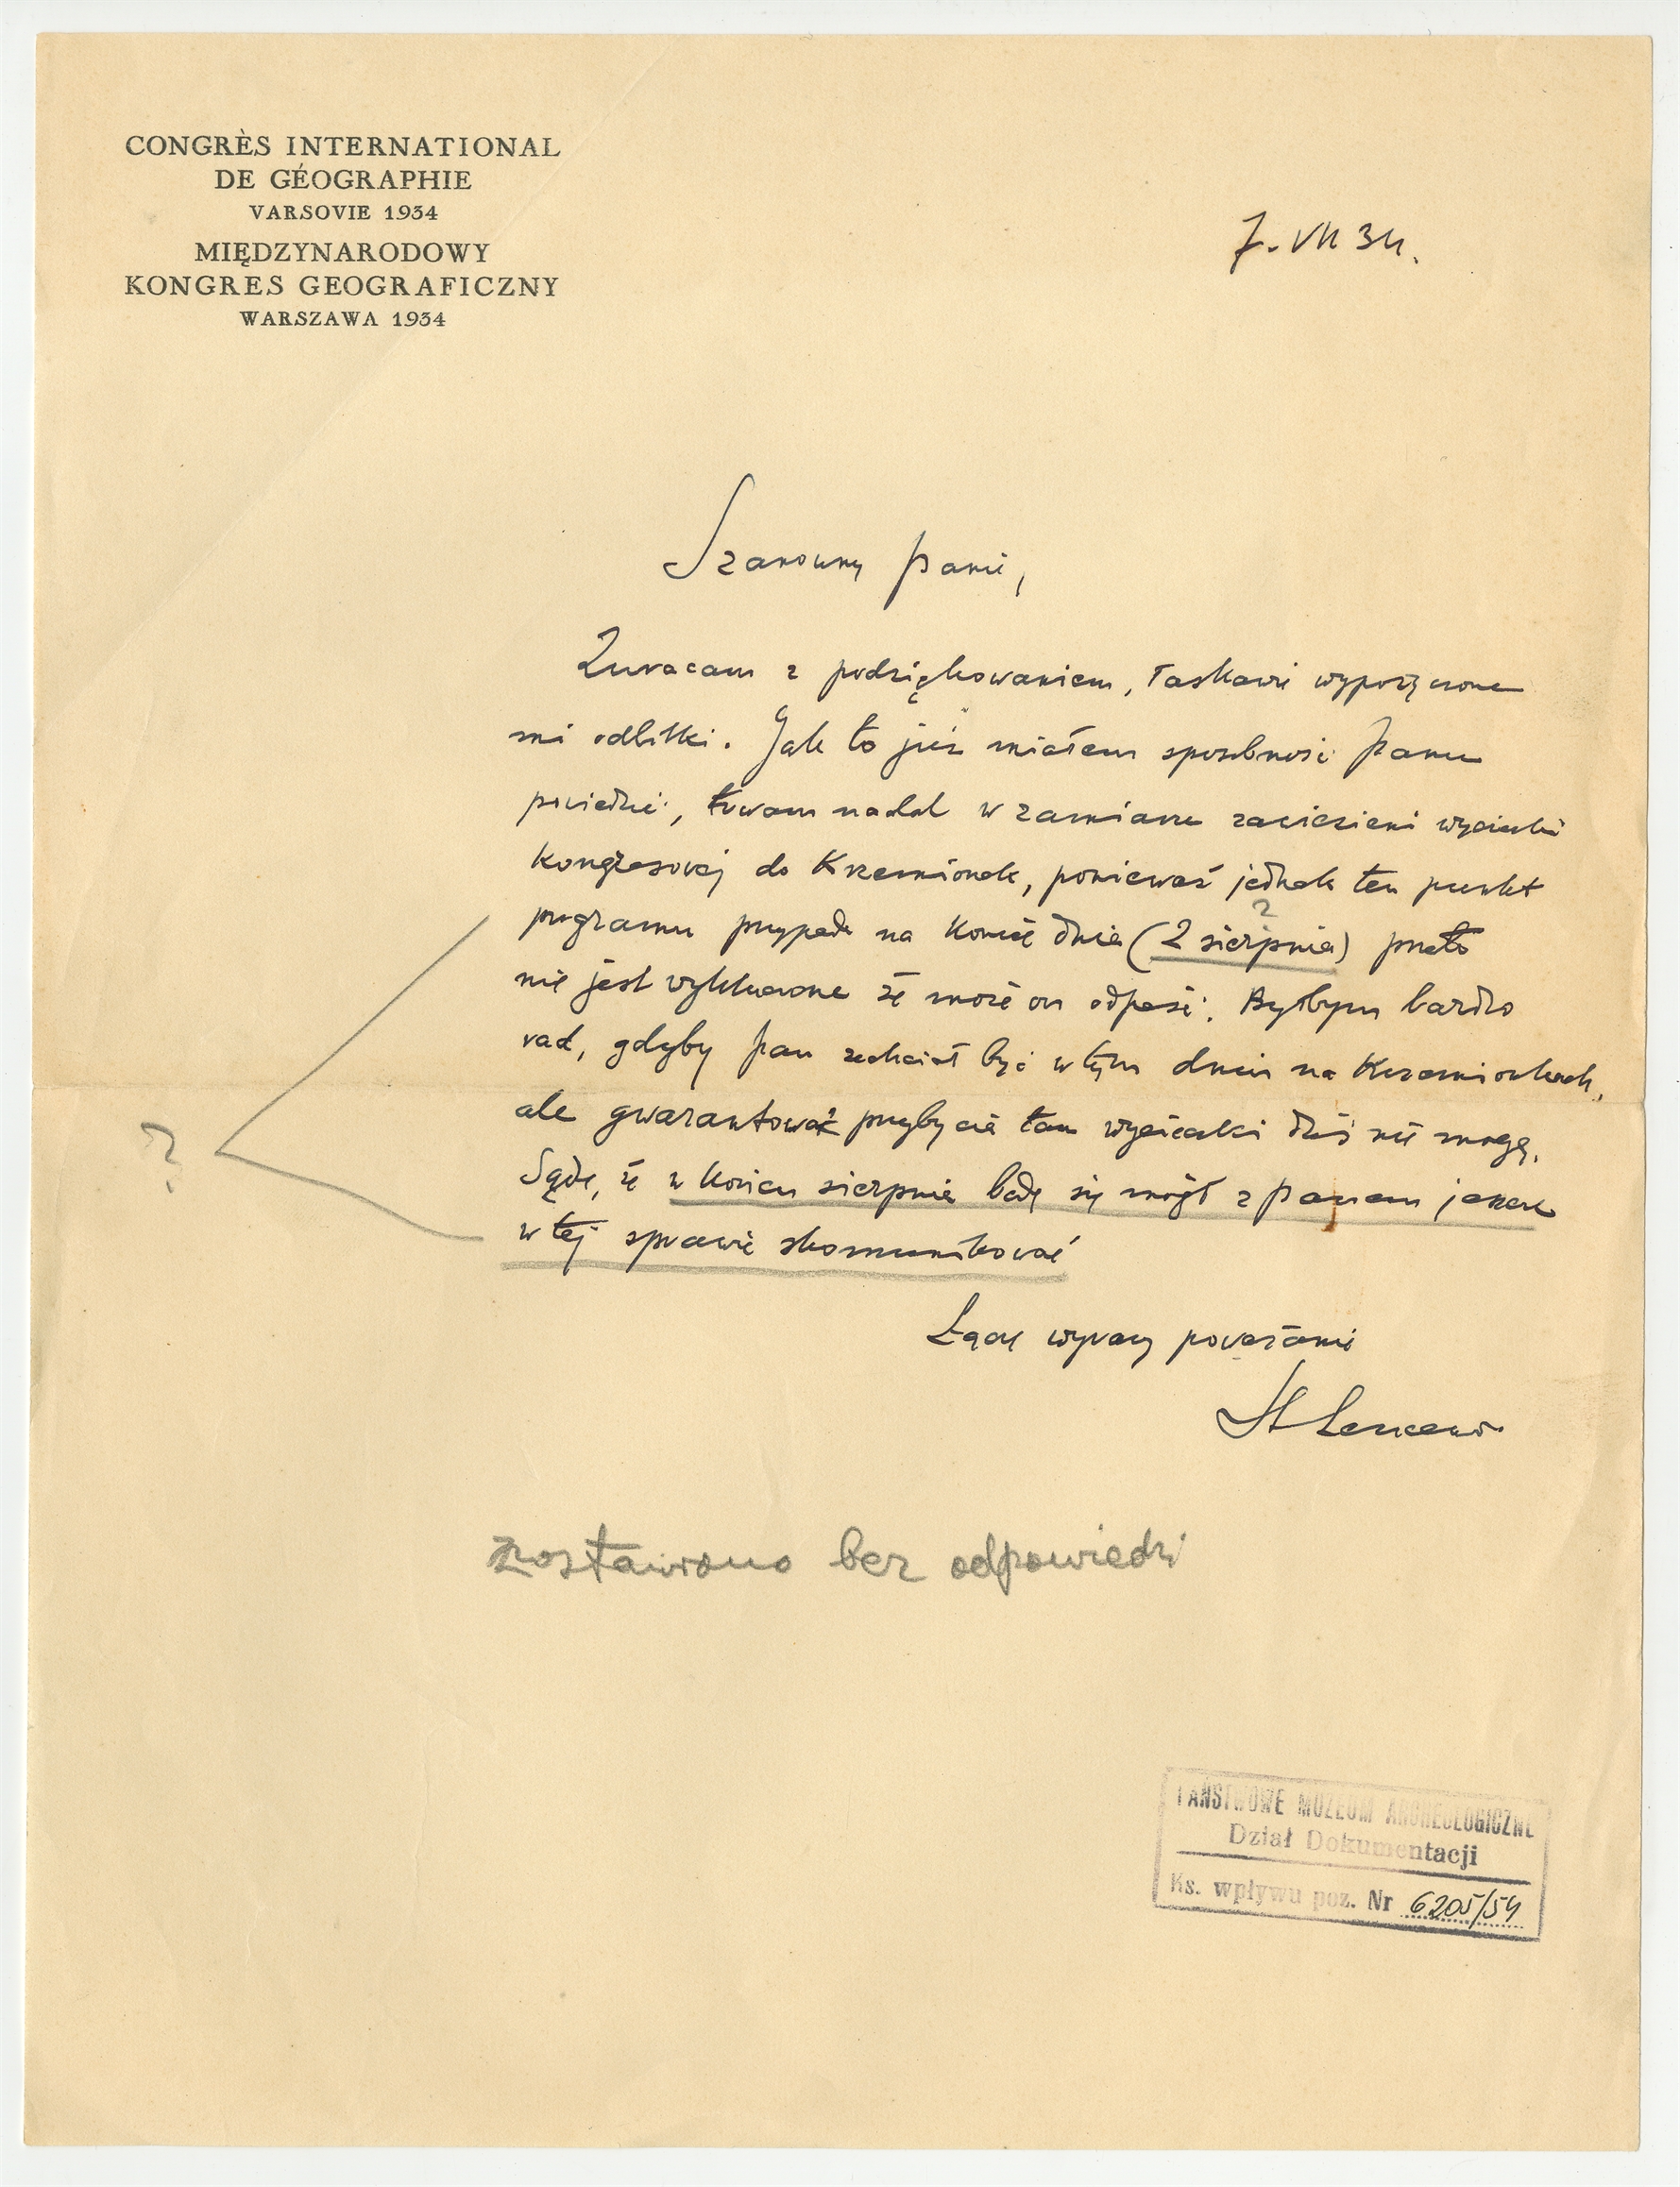 CONGRÈS INTERNATIONAL
DE GÉOGRAPHIE
VARSOVIE 1934
MIĘDZYNARODOWY
KONGRES GEOGRAFICZNY
WARSZAWA 1934
7. VII 34.
Szanowny Panie,
Zwracam z podziękowaniem, łaskawie wypożyczone
mi odbitki. Jak to już miałem sposobność Panu
powiedzieć, trwam nadal w zamiarze zawiezienia wycieczki
Kongresowej do Krzemionek, ponieważ jednak ten punkt
programu przypada na koniec dnia (2 sierpnia) przeto
?
nie jest wykluczone że może on odpaść. Byłbym bardzo
rad, gdyby Pan zechciał być w tym dniu na Krzemionkach,
ale gwarantować przybycia tam wycieczki dziś nie mogę.
?
Sądzę, że w końcu sierpnia będę się mógł z Panem jeszcze
w tej sprawie skomunikować
Łączę wyrazy poważania
St Lencewicz
Zostawiono bez odpowiedzi
PAŃSTWOWE MUZEUM ARCHEOLOGICZNE
Dział Dokumentacji
Ks. wpływu poz. Nr 6205/54